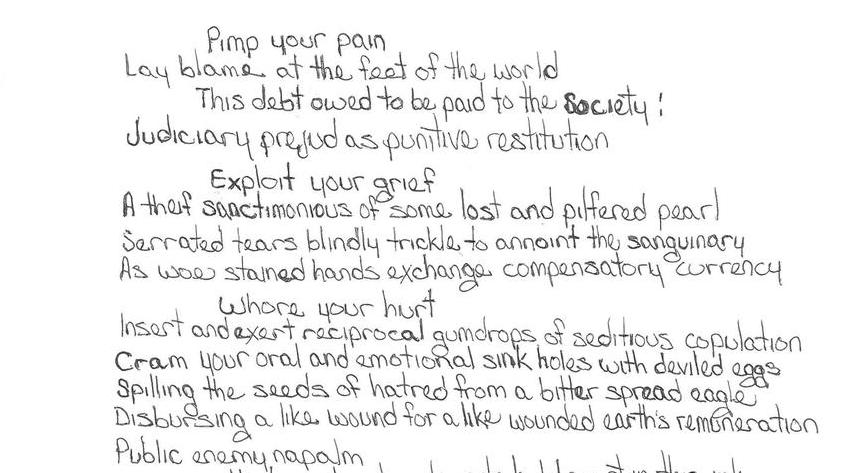 Pimp your pain
Lay blame at the feet of the world
This debt owed to be paid to the Society!
Judiciary prejud as punitive restitution
Exploit your grief
A theif sanctimonious of some lost and pilfered pearl
Serrated tears blindly trickle to annoint the sanguinary
As woe stained hands exchange compensatory currency
Whore your hurt
Insert and exert reciprocal gumdrops of seditious copulation
Cram your oral and emotional sink holes with deviled eggs
Spilling the seeds of hatred from a bitter spread eagle
Disbursing a like wound for a like wounded earth's remuneration
Public enemy, napalm